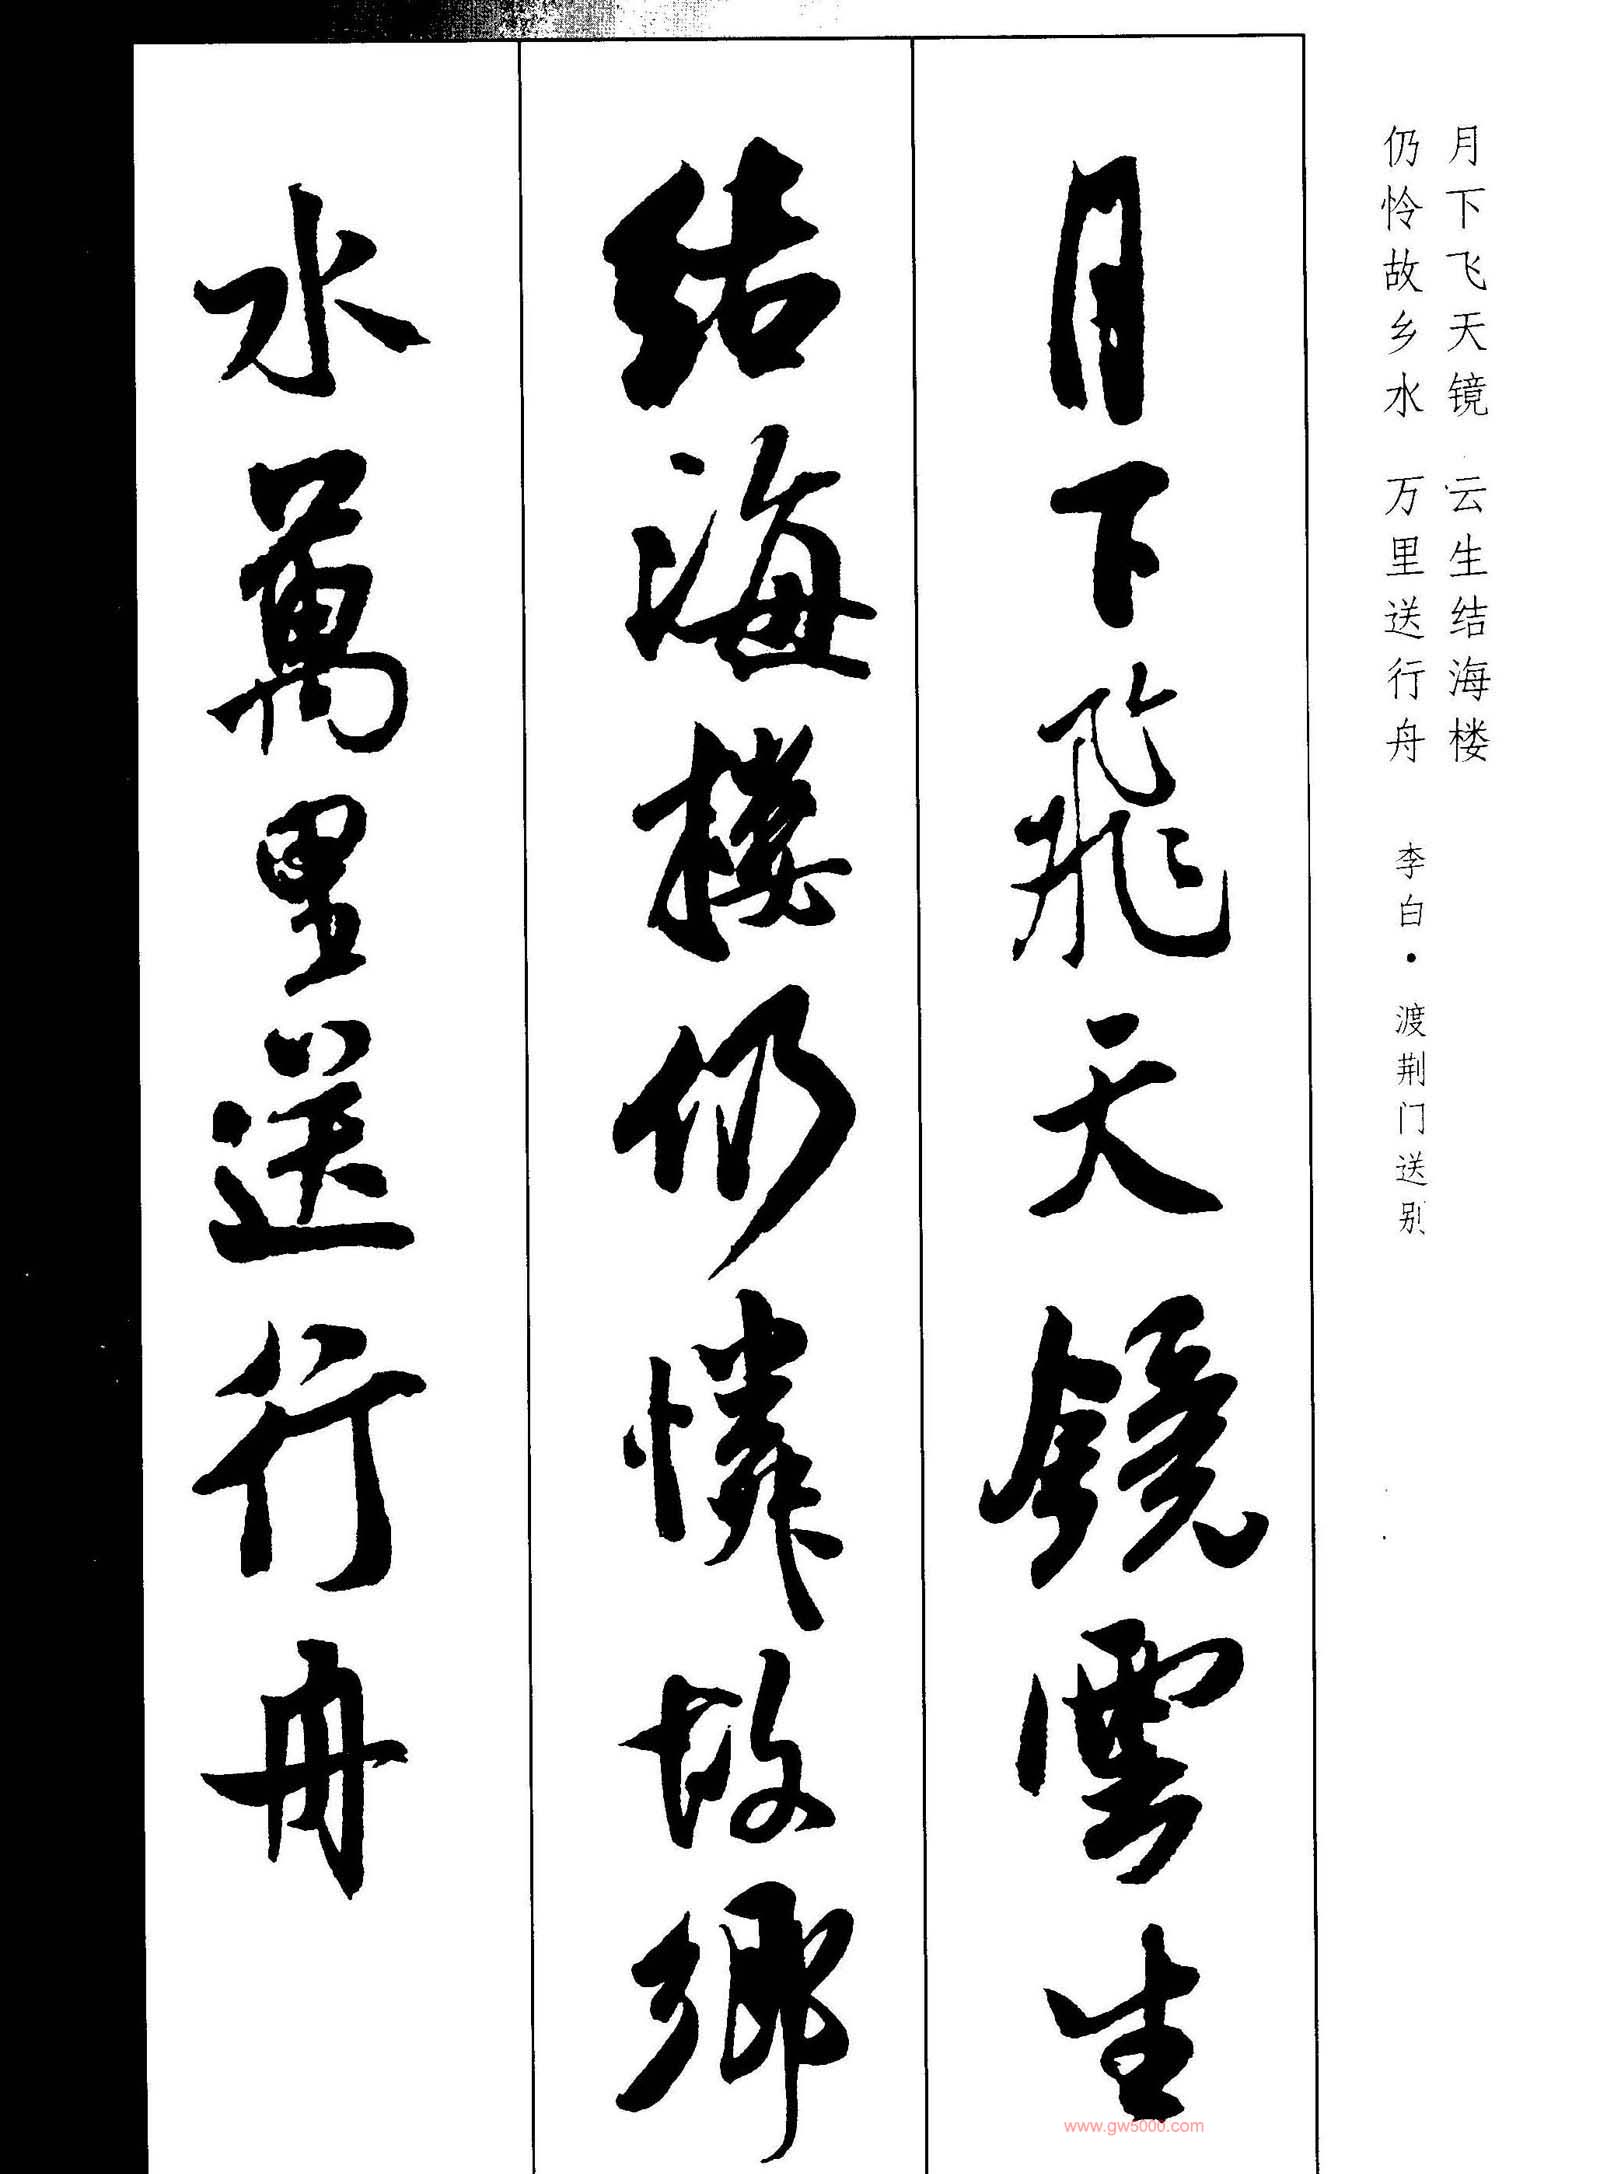 月下飞天镜 云生结海楼
仍怜故乡水 万里送行舟
李白·渡荆门送别
月下飛天鏡雲生
结海楼仍憐故鄉
水萬里送行舟
www.gw5000.com